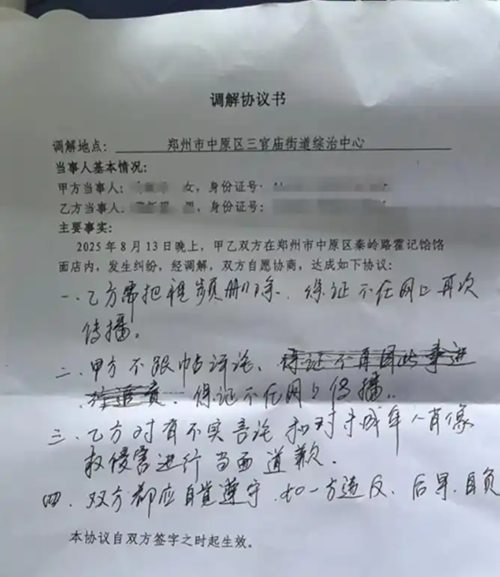 调解协议书
调解地点： 郑州市中原区三官庙街道综治中心
当事人基本情况：
甲方当事人： 女，身份证号：
乙方当事人： 男，身份证号：
主要事实：
2025年8月13日晚上，甲乙双方在郑州市中原区秦岭路霍记饸饹
面店内，发生纠纷，经调解，双方自愿协商，达成如下协议：
一、乙方需把视频删除，保证不在网上再次
传播。
二、甲方不跟帖评论，保证不再因此事进
保证不在网上传播。
三、乙方对有不实言论和对未成年人肖像
权侵害进行当面道歉.
四、双方都应自觉遵守，如一方违反，后果自负
本协议自双方签字之时起生效。